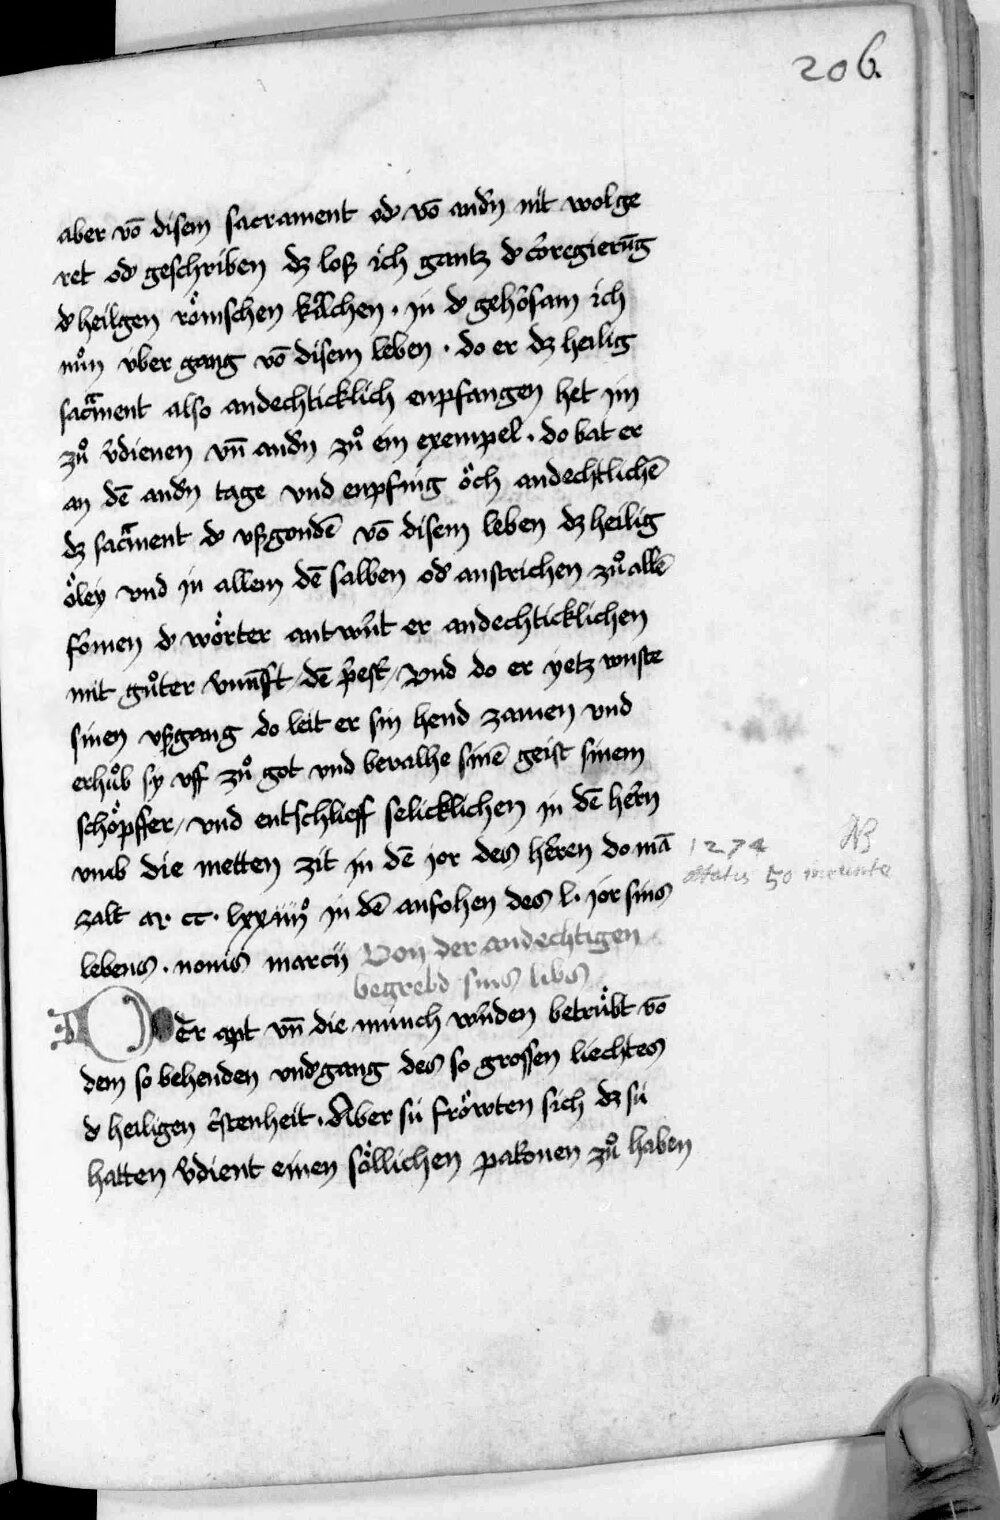 206.
aber vō disem sacrament od' vō and'n nit wol ge
ret od' geschriben dz loß ich gantz d' coregierūg
d' heilgen römschen kilchen . in d' gehorsam ich
nůn über gang vō disem leben . do er dz heilig
sacͣment also andechticklich enpfangen het im
zů v'dienen vn̄ and'n zů ein exempel . do bat er
an dē and'n tage vnd enpfing öch andechtlichē
dz sacͣment d' vßgondē vō disem leben dz heilig
öley vnd in allem dē salben od' anstrichen zů allē
fomen d' wörter antwurt er andechticklichen
mit gůter v'nūnft / dē p'est' / Vnd do er yetz wuste
sinen vßgang do leit er sin hend zamen vnd
erhůb sy vff zů got vnd bevalhe sinē geist sinem
schöpffer / vnd entschlieff selicklichen in dē hern
vmb die metten zit in dē jor des heren do mā
zalt M . cc . lxxiiijͦ in dē anfohen des l . jor sins
1274 NB
ætatis 50 ineunte
lebens . nonis marcij Von der andechtigen
begrebd sins libs
DEr apt vn̄ die münch wurden betrůbt vō
dem so behenden vnd'gang des so grossen liechtes
d' heiligen c'stenheit . Aber sü fröwten sich dz sü
hatten v'dient einen söllichen patronen zů haben